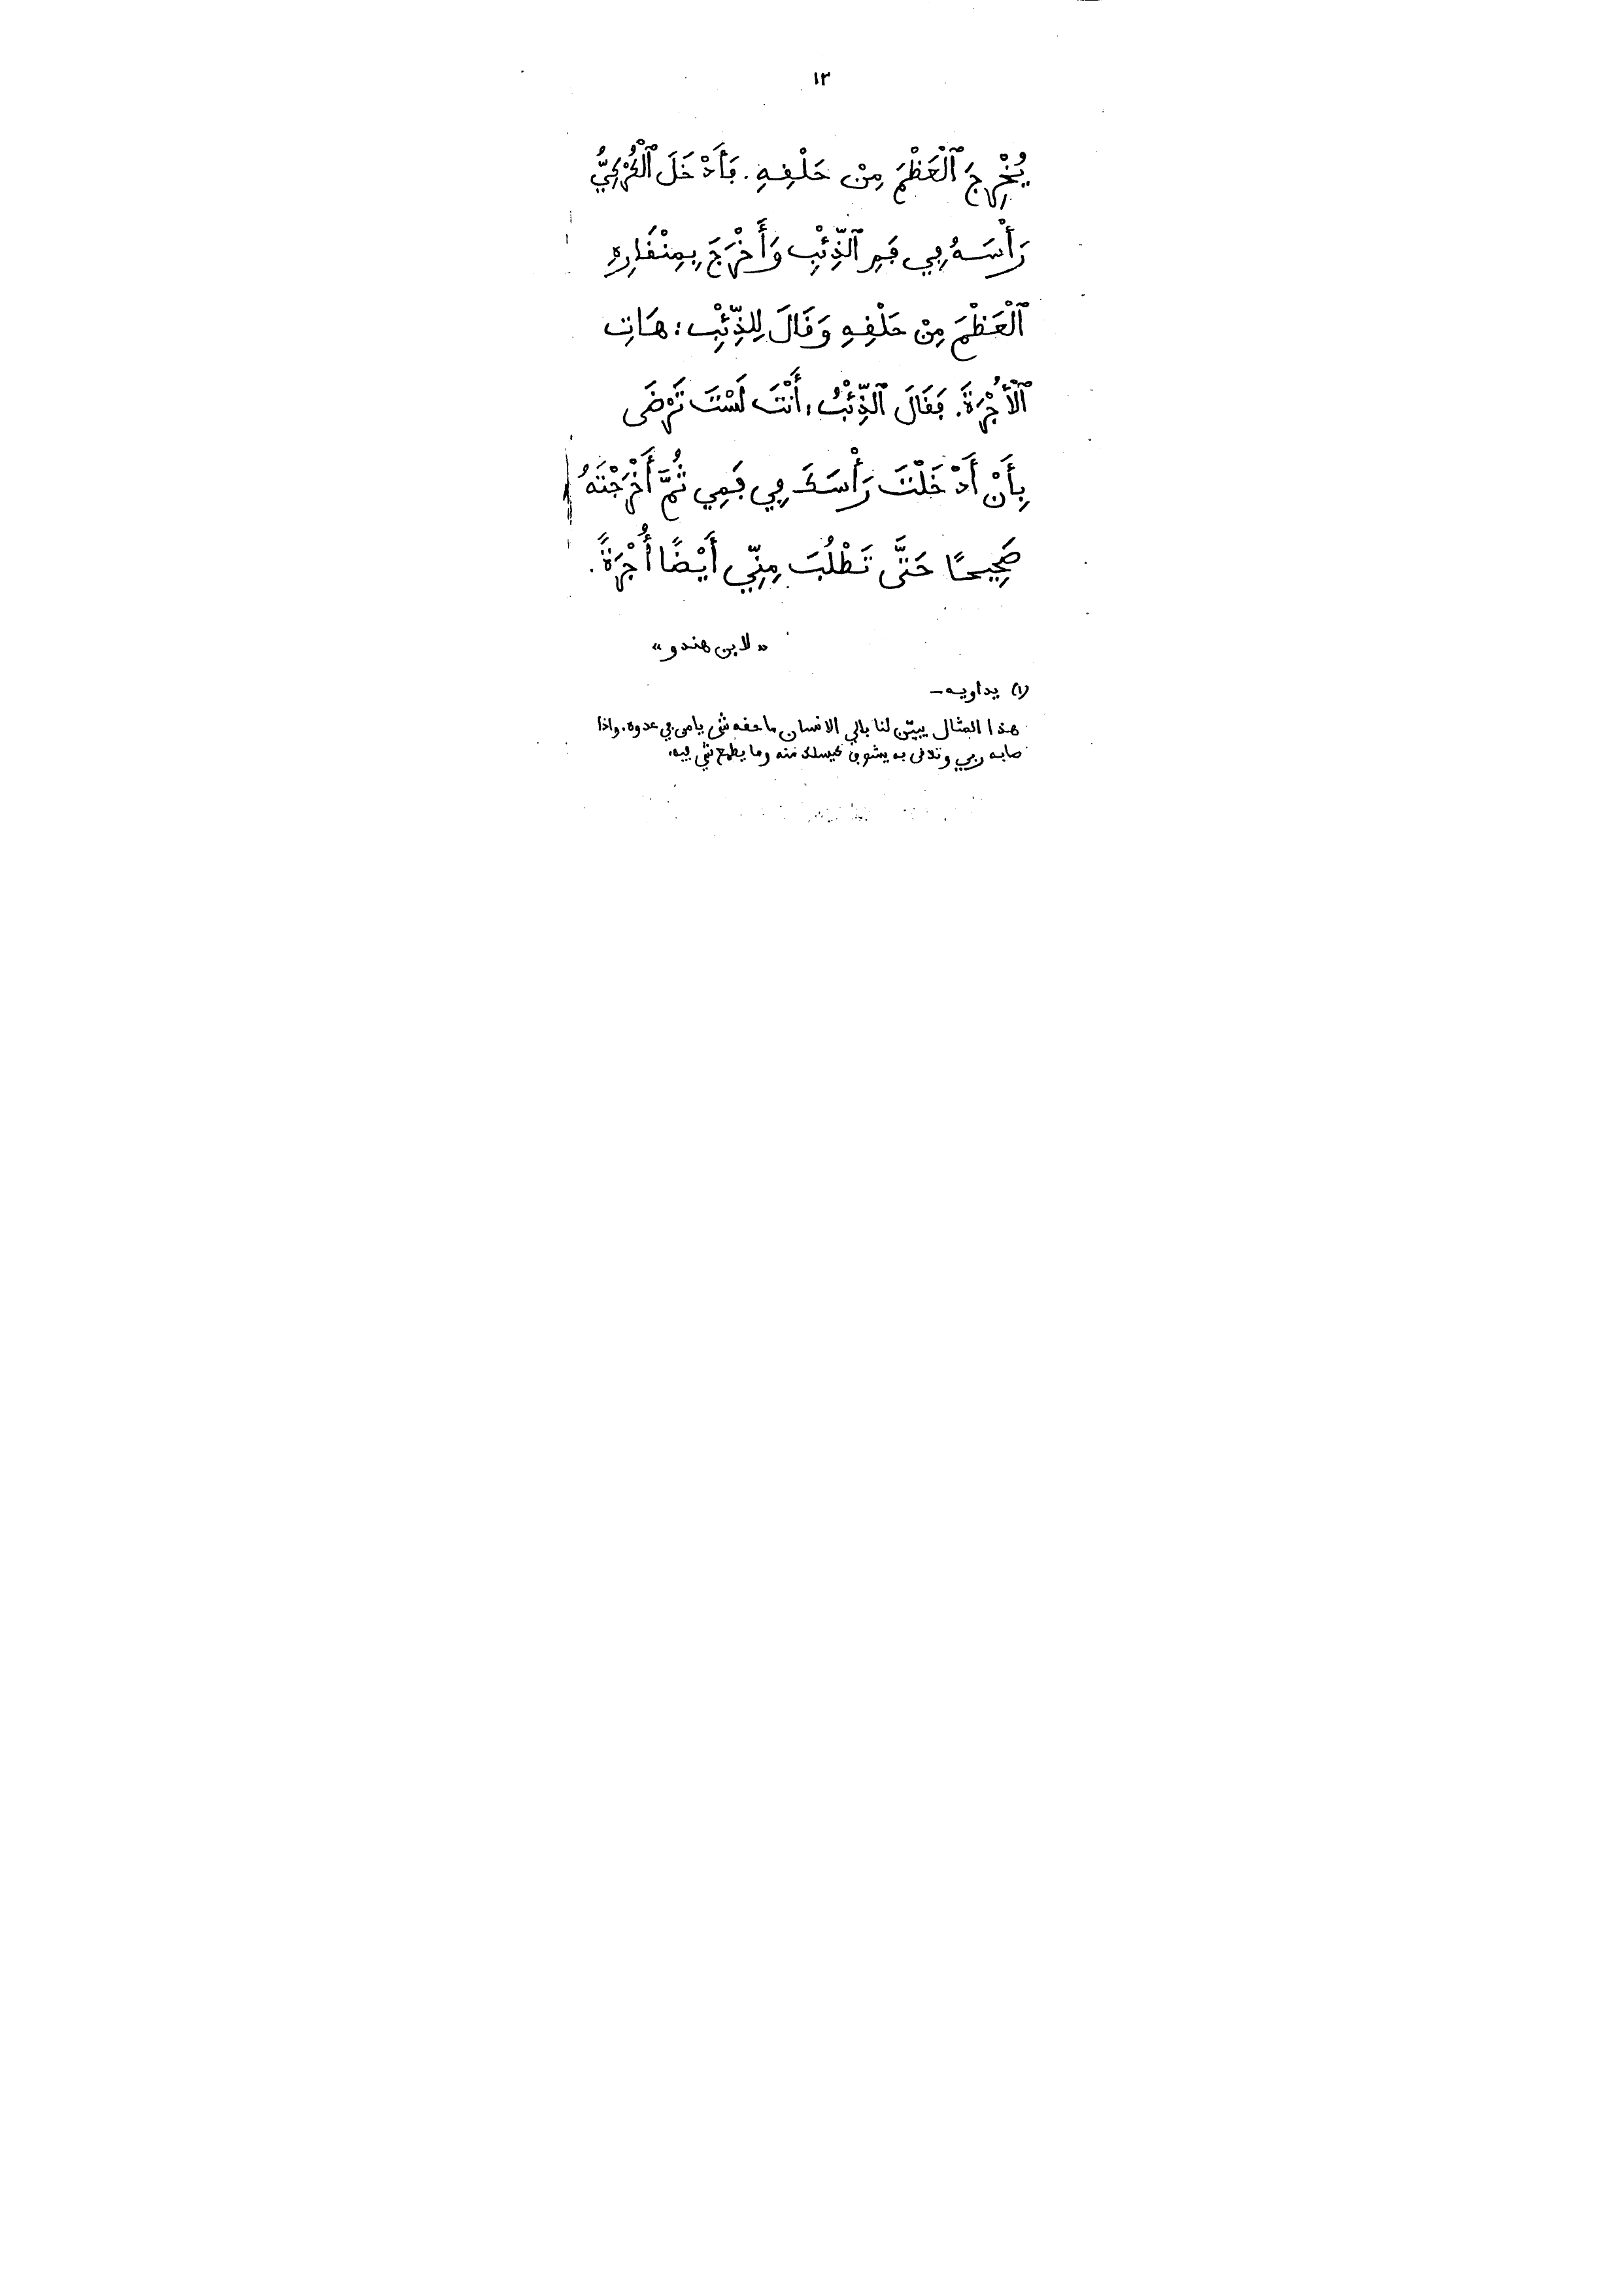 ١٣
يُخْرِجَ ٱلْعَظْمَ مِنْ حَلْقِهِ. فَأَدْخَلَ ٱلْكُرْكِيُّ
رَأْسَهُ فِي فَمِ ٱلذِّئْبِ وَأَخْرَجَ بِمِنْقَارِهِ
ٱلْعَظْمَ مِنْ حَلْقِهِ وَقَالَ لِلذِّئْبِ: هَاتِ
ٱلْأُجْرَةَ. فَقَالَ ٱلذِّئْبُ: أَنْتَ لَسْتَ تَرْضَى
بِأَنْ أَدْخَلْتَ رَأْسَكَ فِي فَمِي ثُمَّ أَخْرَجْتَهُ
صَحِيحًا حَتَّى تَطْلُبَ مِنِّي أَيْضًا أُجْرَةً.
«لابن هندو»
(١) يداويه -
هذا المثال يبيّن لنا بالي الانسان ما حقه شي يامن في عدوه. واذا
صابه ربي وتلاقى به يشوف كيسلك منه وما يطمع شي فيه.